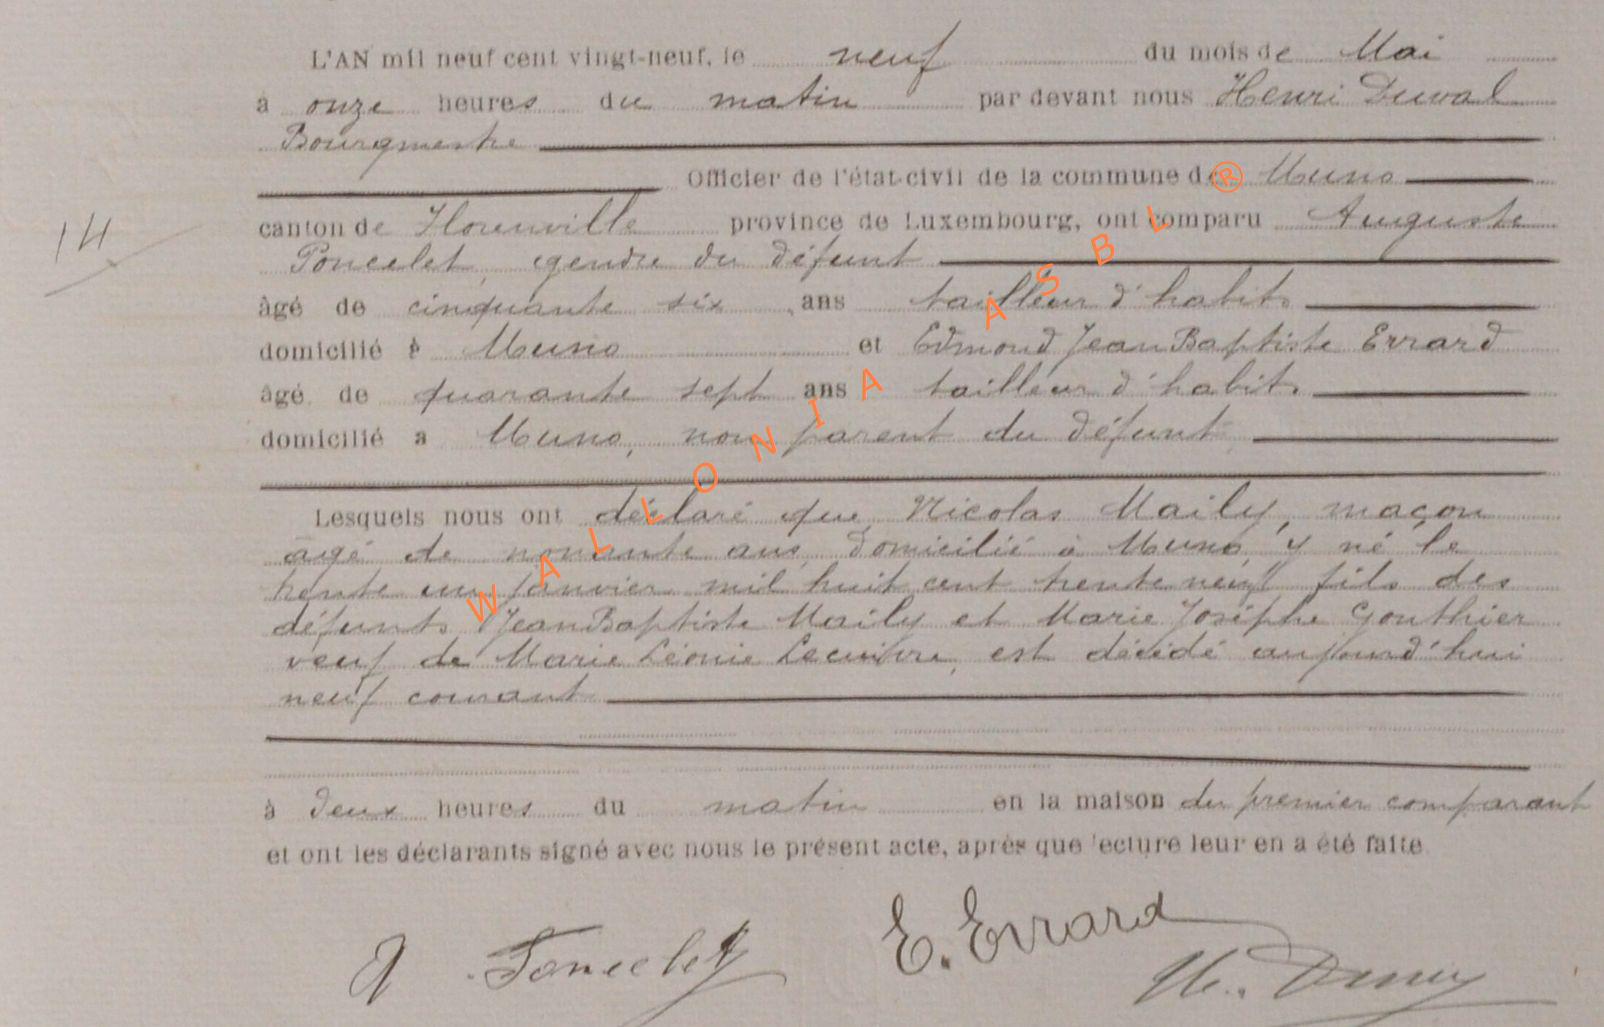 L'AN mil neuf cent vingt-neuf, le neuf du mois de Mai
à onze heures du matin par devant nous Henri Duval
Bourgmestre
Officier de l'état-civil de la commune de Muno
14
canton de Florenville province de Luxembourg, ont comparu Auguste
Poncelet, gendre du défunt
âgé de cinquante six ans tailleur d'habits
domicilié à Muno et Edmond Jean Baptiste Errard
âgé de quarante sept ans tailleur d'habits
domicilié a Muno, non parent du défunt
Lesquels nous ont déclaré que Nicolas Maily, maçon
âgé de nonante ans, domicilié à Muno, y né le
trente un janvier mil huit cent trente neuf fils des
défunts Jean Baptiste Maily et Marie Josèphe Gouthier
veuf de Marie Léonie Lecuivre, est décédé aujourd'hui
neuf courant
à deux heures du matin en la maison du premier comparant
et ont les déclarants signé avec nous le présent acte, après que lecture leur en a été faite
A Poncelet E. Errard
WALLONIA ASBL ®